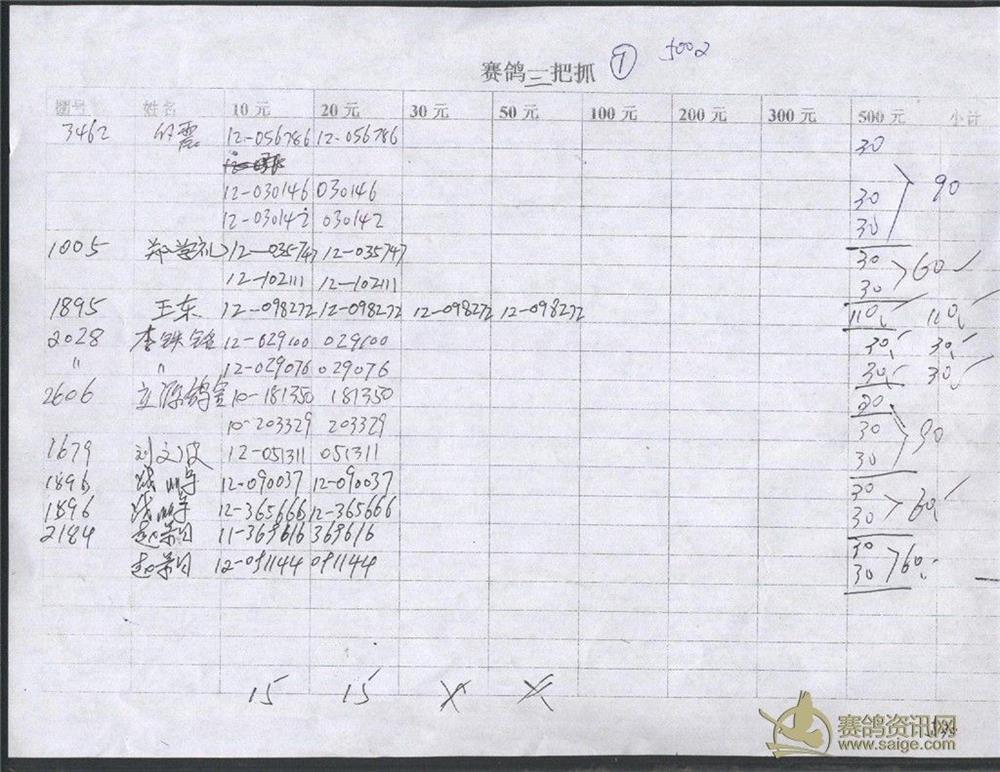 赛鸽三把抓 ① 5002
圈号 姓名 10元 20元 30元 50元 100元 200元 300元 500元 小计
3462 12-056786 12-056786 30
12-030146 030146 30 90
12-030142 030142 30
1005 郑学礼 12-035747 12-035747 30 60 ✓
12-102111 12-102111 30
1895 王东 12-098272 12-098272 12-098272 12-098272 110 110
2028 李铁铭 12-029100 029100 30 30
" " 12-029076 029076 30 30
2606 10-181350 181350 30
10-203329 203329 30 90
1679 刘文波 12-051311 051311 30
1896 12-090037 12-090037 30 60
1896 12-365666 12-365666 30
2184 11-369616 369616 30 60
12-091144 091144 30
15 15 X X
赛鸽资讯网
www.saige.com